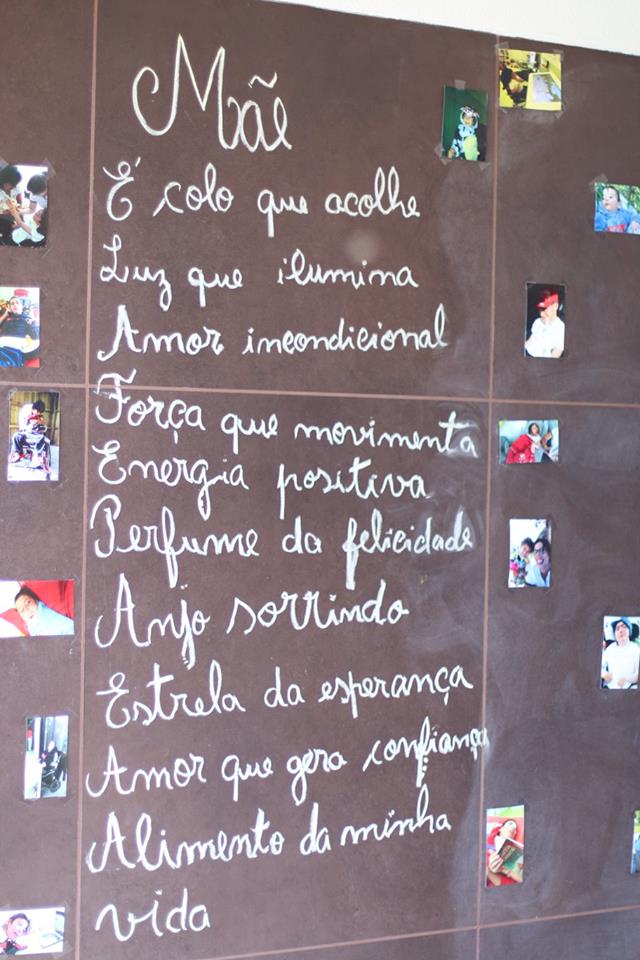 Mãe
É colo que acolhe
Luz que ilumina
Amor incondicional
Força que movimenta
Energia positiva
Perfume da felicidade
Anjo sorrindo
Estrela da esperança
Amor que gera confiança
Alimento da minha
vida